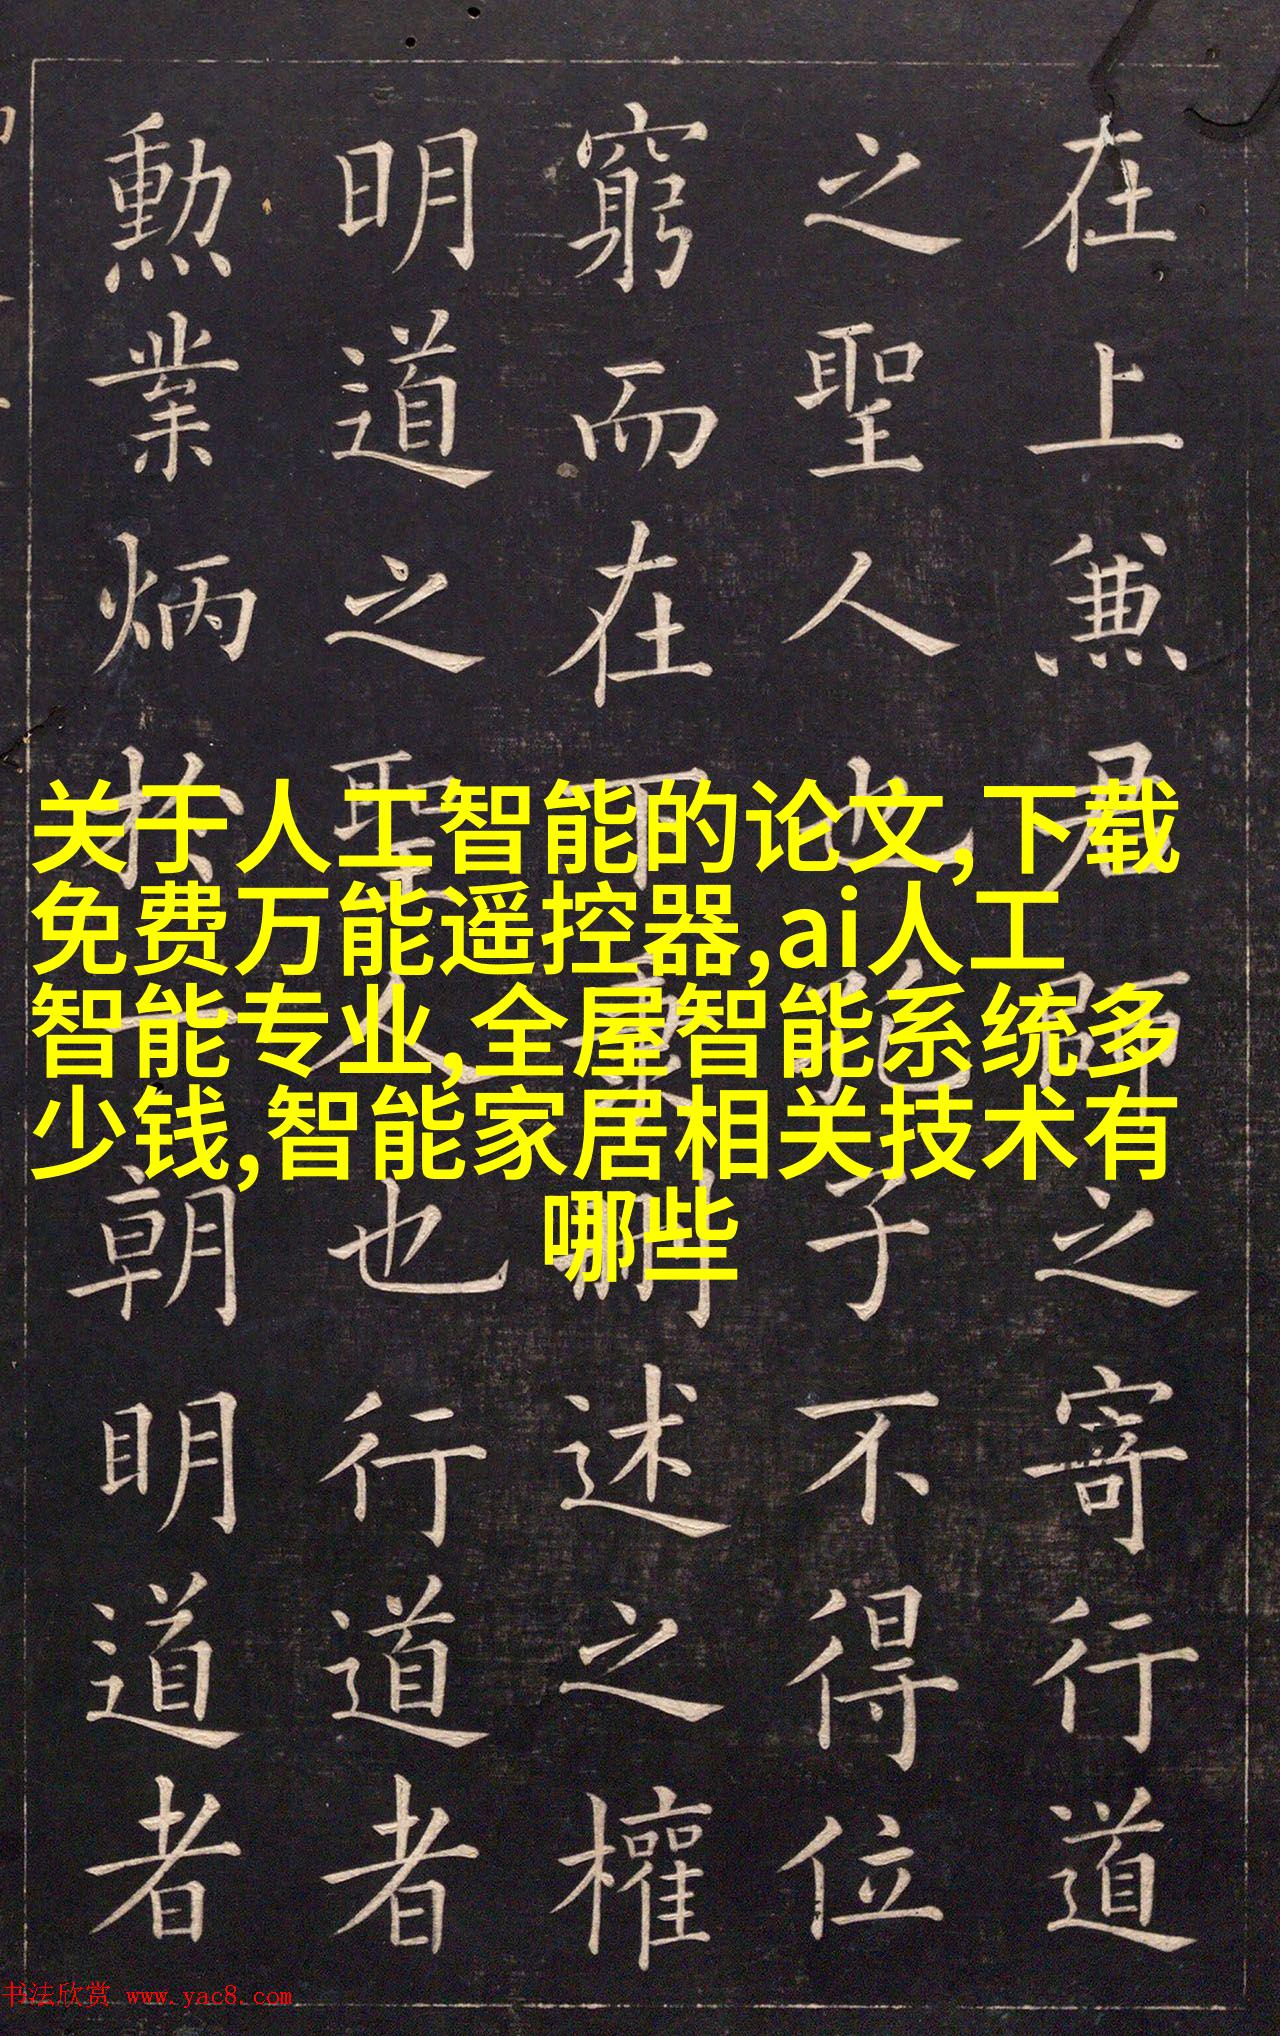 在上兼君師之寄行道
之聖人也子不得位
窮而在下秉刪述之權
明道之聖人也行道者
勳業炳於一朝明道者
关于人工智能的论文,下载
免费万能遥控器,ai人工
智能专业,全屋智能系统多
少钱,智能家居相关技术有
哪些
书法欣赏 www.yac8.com